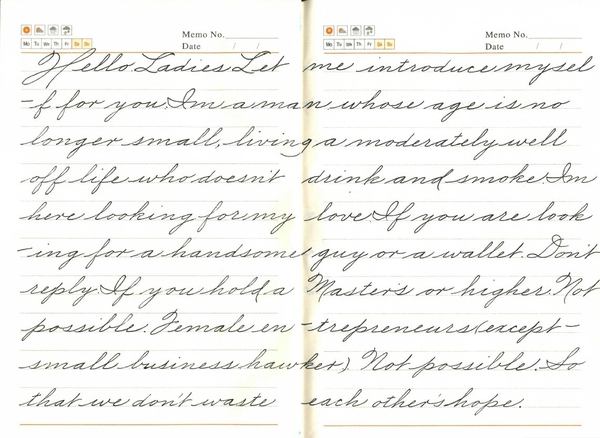 Memo No.
Date / /
Mo Tu We Th Fr Sa Su
Memo No.
Date / /
Mo Tu We Th Fr Sa Su
Hello Ladies Let me introduce mysel
-f for you. Im a man whose age is no
longer small, living a moderately well
off life who doesn't drink and smoke. Im
here looking for my love. If you are look
-ing for a handsome guy or a wallet. Don't
reply. If you hold a Master's or higher. Not
possible. Female en -trepreneurs (except -
small business hawker) Not possible. So
that we don't waste each other's hope.